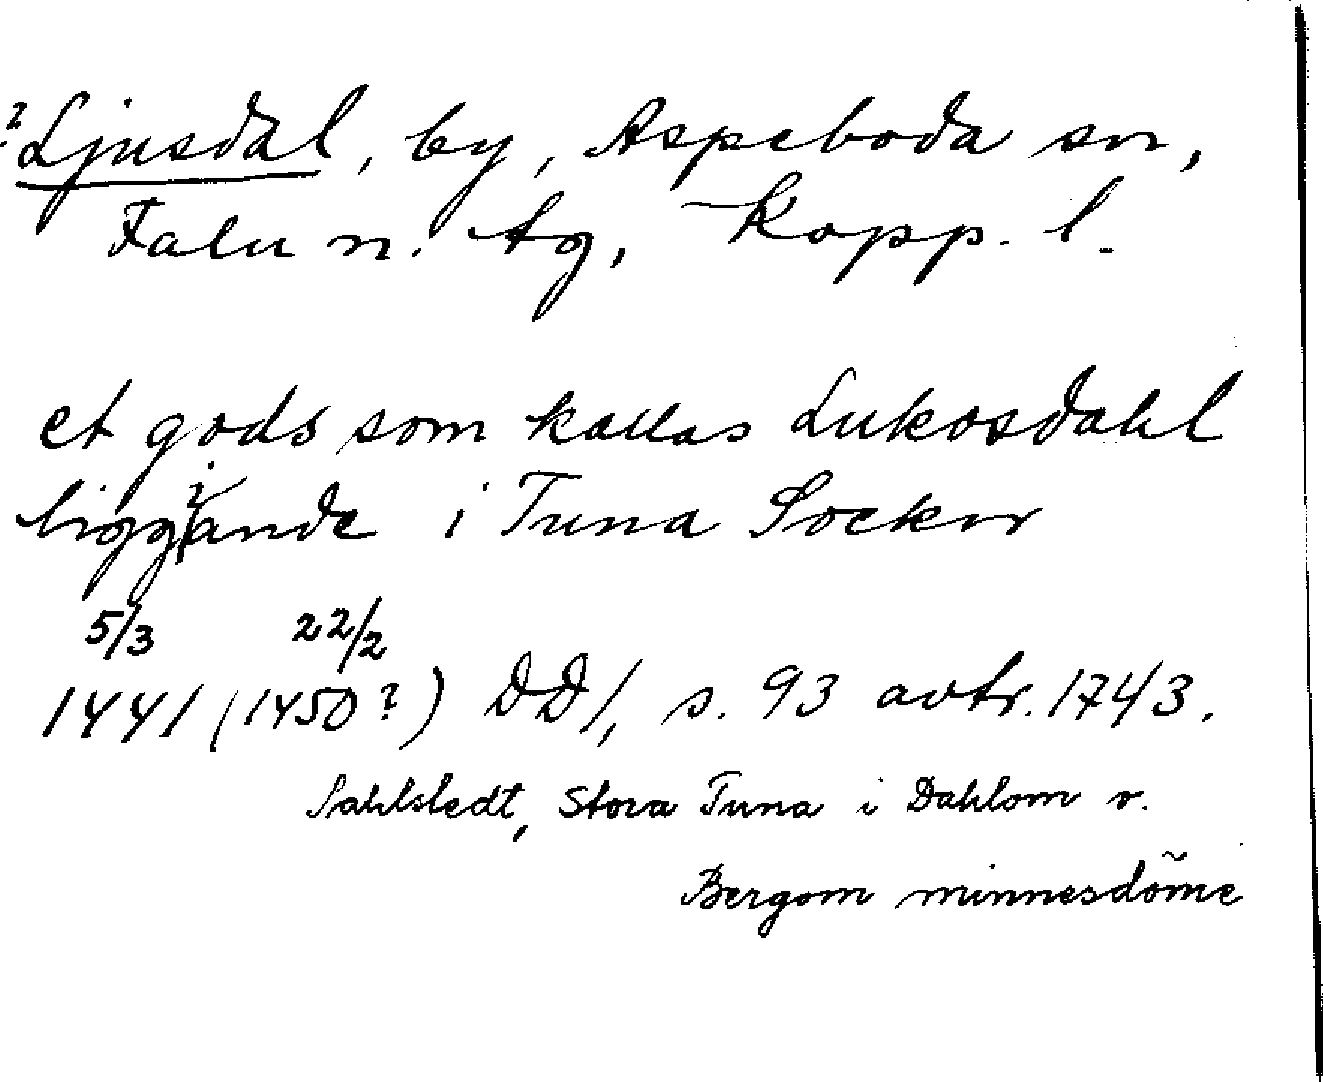 ? Ljusdal, by, Aspeboda sn,
Falu n. tg, Kopp. l.
et gods som kallas Lukosdahl
liggiande i Tuna Sockn
5/3 22/2
1441 (1450?) DD 1, s. 93 avtr. 1743.
Sahlstedt, Stora Tuna i Dahlom v.
Bergom minnesdöme